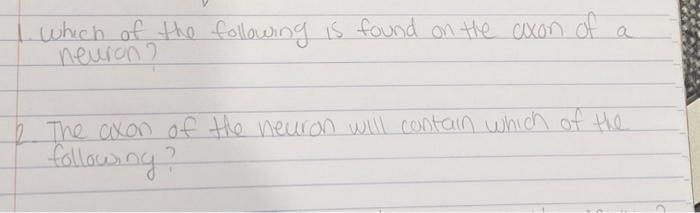 1. Which of the following is found on the axon of a
neuron?
2. The axon of the neuron will contain which of the
following?